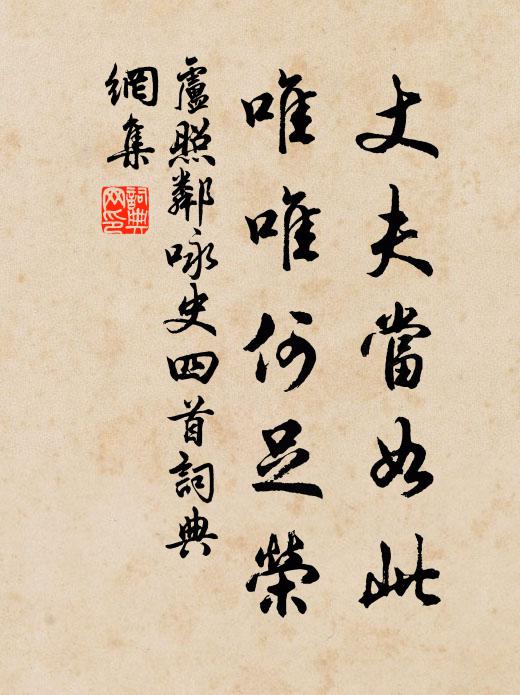 丈夫當如此
唯唯何足榮
盧照鄰咏史四首詞典
網集
詞典
网印